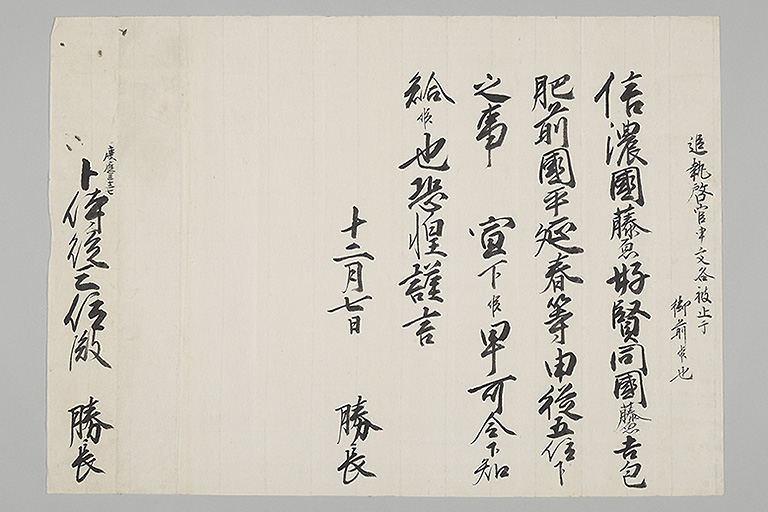 追執啓官中文各被止于
御前候也
信濃國藤原好賢同國藤原吉包
肥前國平延春等申従五位下
之事 宣下候畢可令下知
給候也恐惶謹言
十二月七日 勝長
慶應三十二七
侍従三位殿 勝長